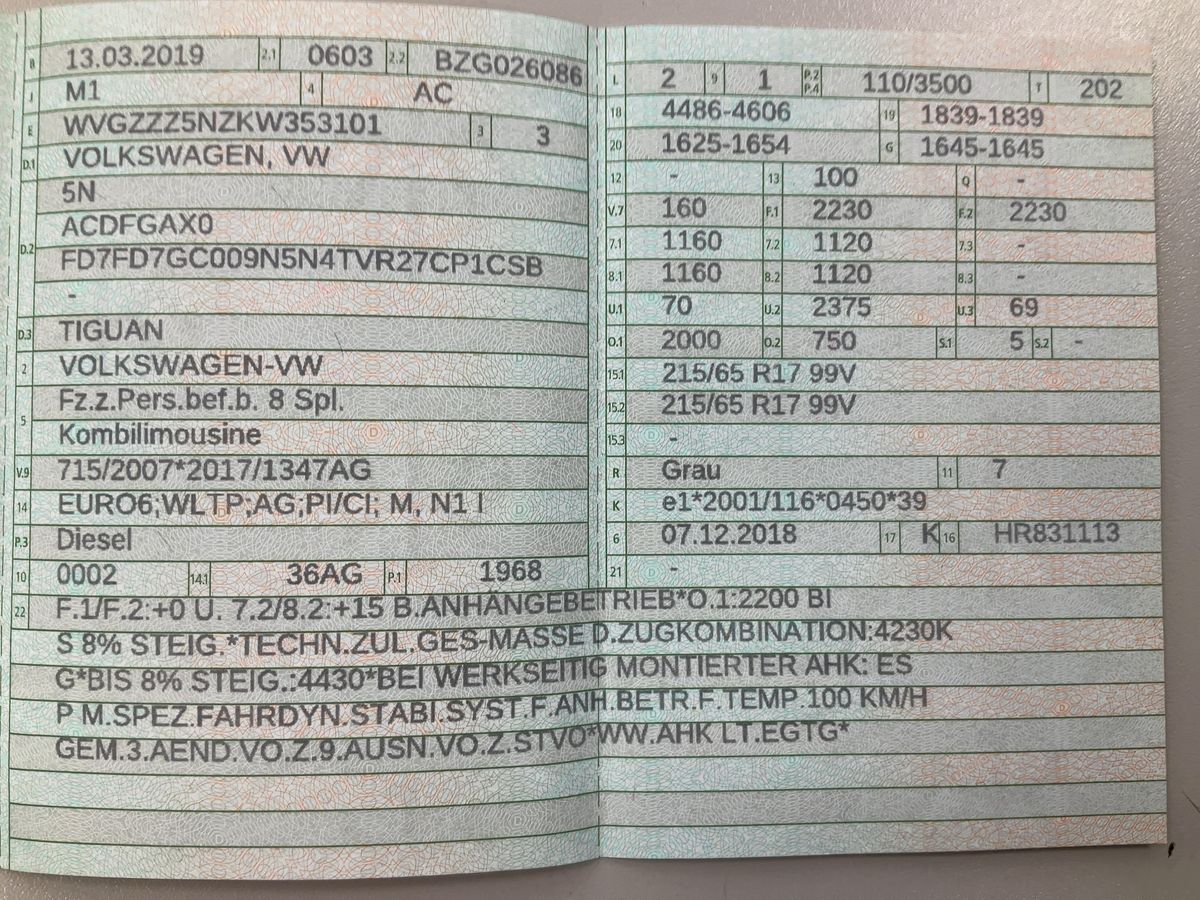 B 13.03.2019 2.1 0603 2.2 BZG026086
J M1 4 AC
E WVGZZZ5NZKW353101 3 3
D.1 VOLKSWAGEN, VW
5N
D.2 ACDFGAX0
FD7FD7GC009N5N4TVR27CP1CSB
-
D.3 TIGUAN
2 VOLKSWAGEN-VW
5 Fz.z.Pers.bef.b. 8 Spl.
Kombilimousine
V.9 715/2007*2017/1347AG
14 EURO6;WLTP;AG;PI/CI; M, N1 I
P.3 Diesel
10 0002 14.1 36AG P.1 1968
L 2 9 1 P.2 P.4 110/3500 T 202
18 4486-4606 19 1839-1839
20 1625-1654 G 1645-1645
12 - 13 100 Q -
V.7 160 F.1 2230 F.2 2230
7.1 1160 7.2 1120 7.3 -
8.1 1160 8.2 1120 8.3 -
U.1 70 U.2 2375 U.3 69
O.1 2000 O.2 750 S.1 5 S.2 -
15.1 215/65 R17 99V
15.2 215/65 R17 99V
15.3 -
R Grau 11 7
K e1*2001/116*0450*39
6 07.12.2018 17 K 16 HR831113
21 -
22 F.1/F.2:+0 U. 7.2/8.2:+15 B.ANHÄNGEBETRIEB*O.1:2200 BI
S 8% STEIG.*TECHN.ZUL.GES-MASSE D.ZUGKOMBINATION:4230K
G*BIS 8% STEIG.:4430*BEI WERKSEITIG MONTIERTER AHK: ES
P M.SPEZ.FAHRDYN.STABI.SYST.F.ANH.BETR.F.TEMP.100 KM/H
GEM.3.AEND.VO.Z.9.AUSN.VO.Z.STVO*WW.AHK LT.EGTG*